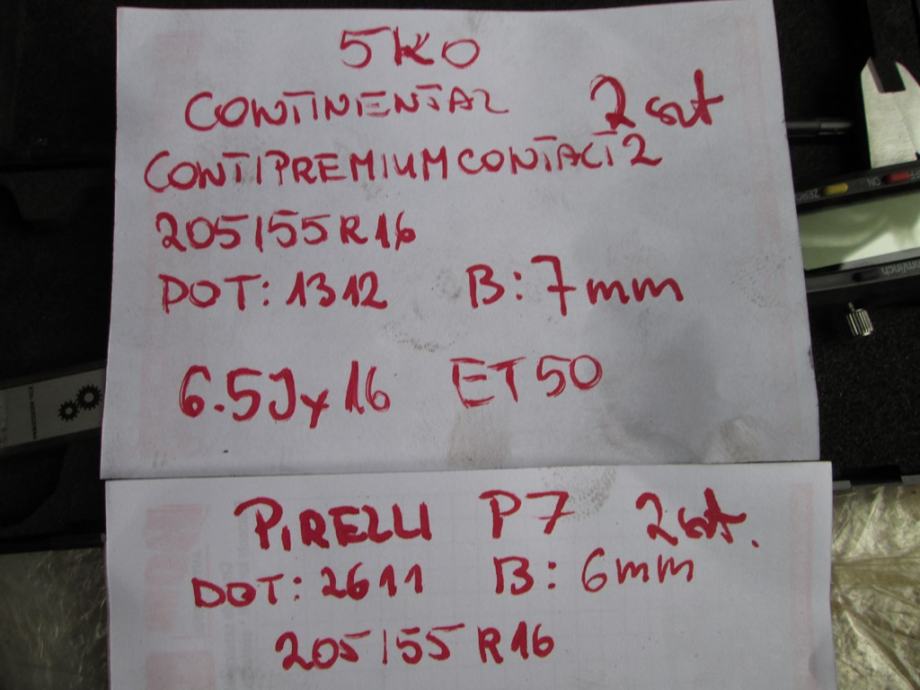 5K0
CONTINENTAL 2 szt
CONTIPREMIUMCONTACT2
205/55R16
DOT: 1312 B: 7mm
6.5Jx16 ET50
PIRELLI P7 2szt.
DOT: 2611 B: 6mm
205/55 R16
ZERO
ON
OFF
mm/inch